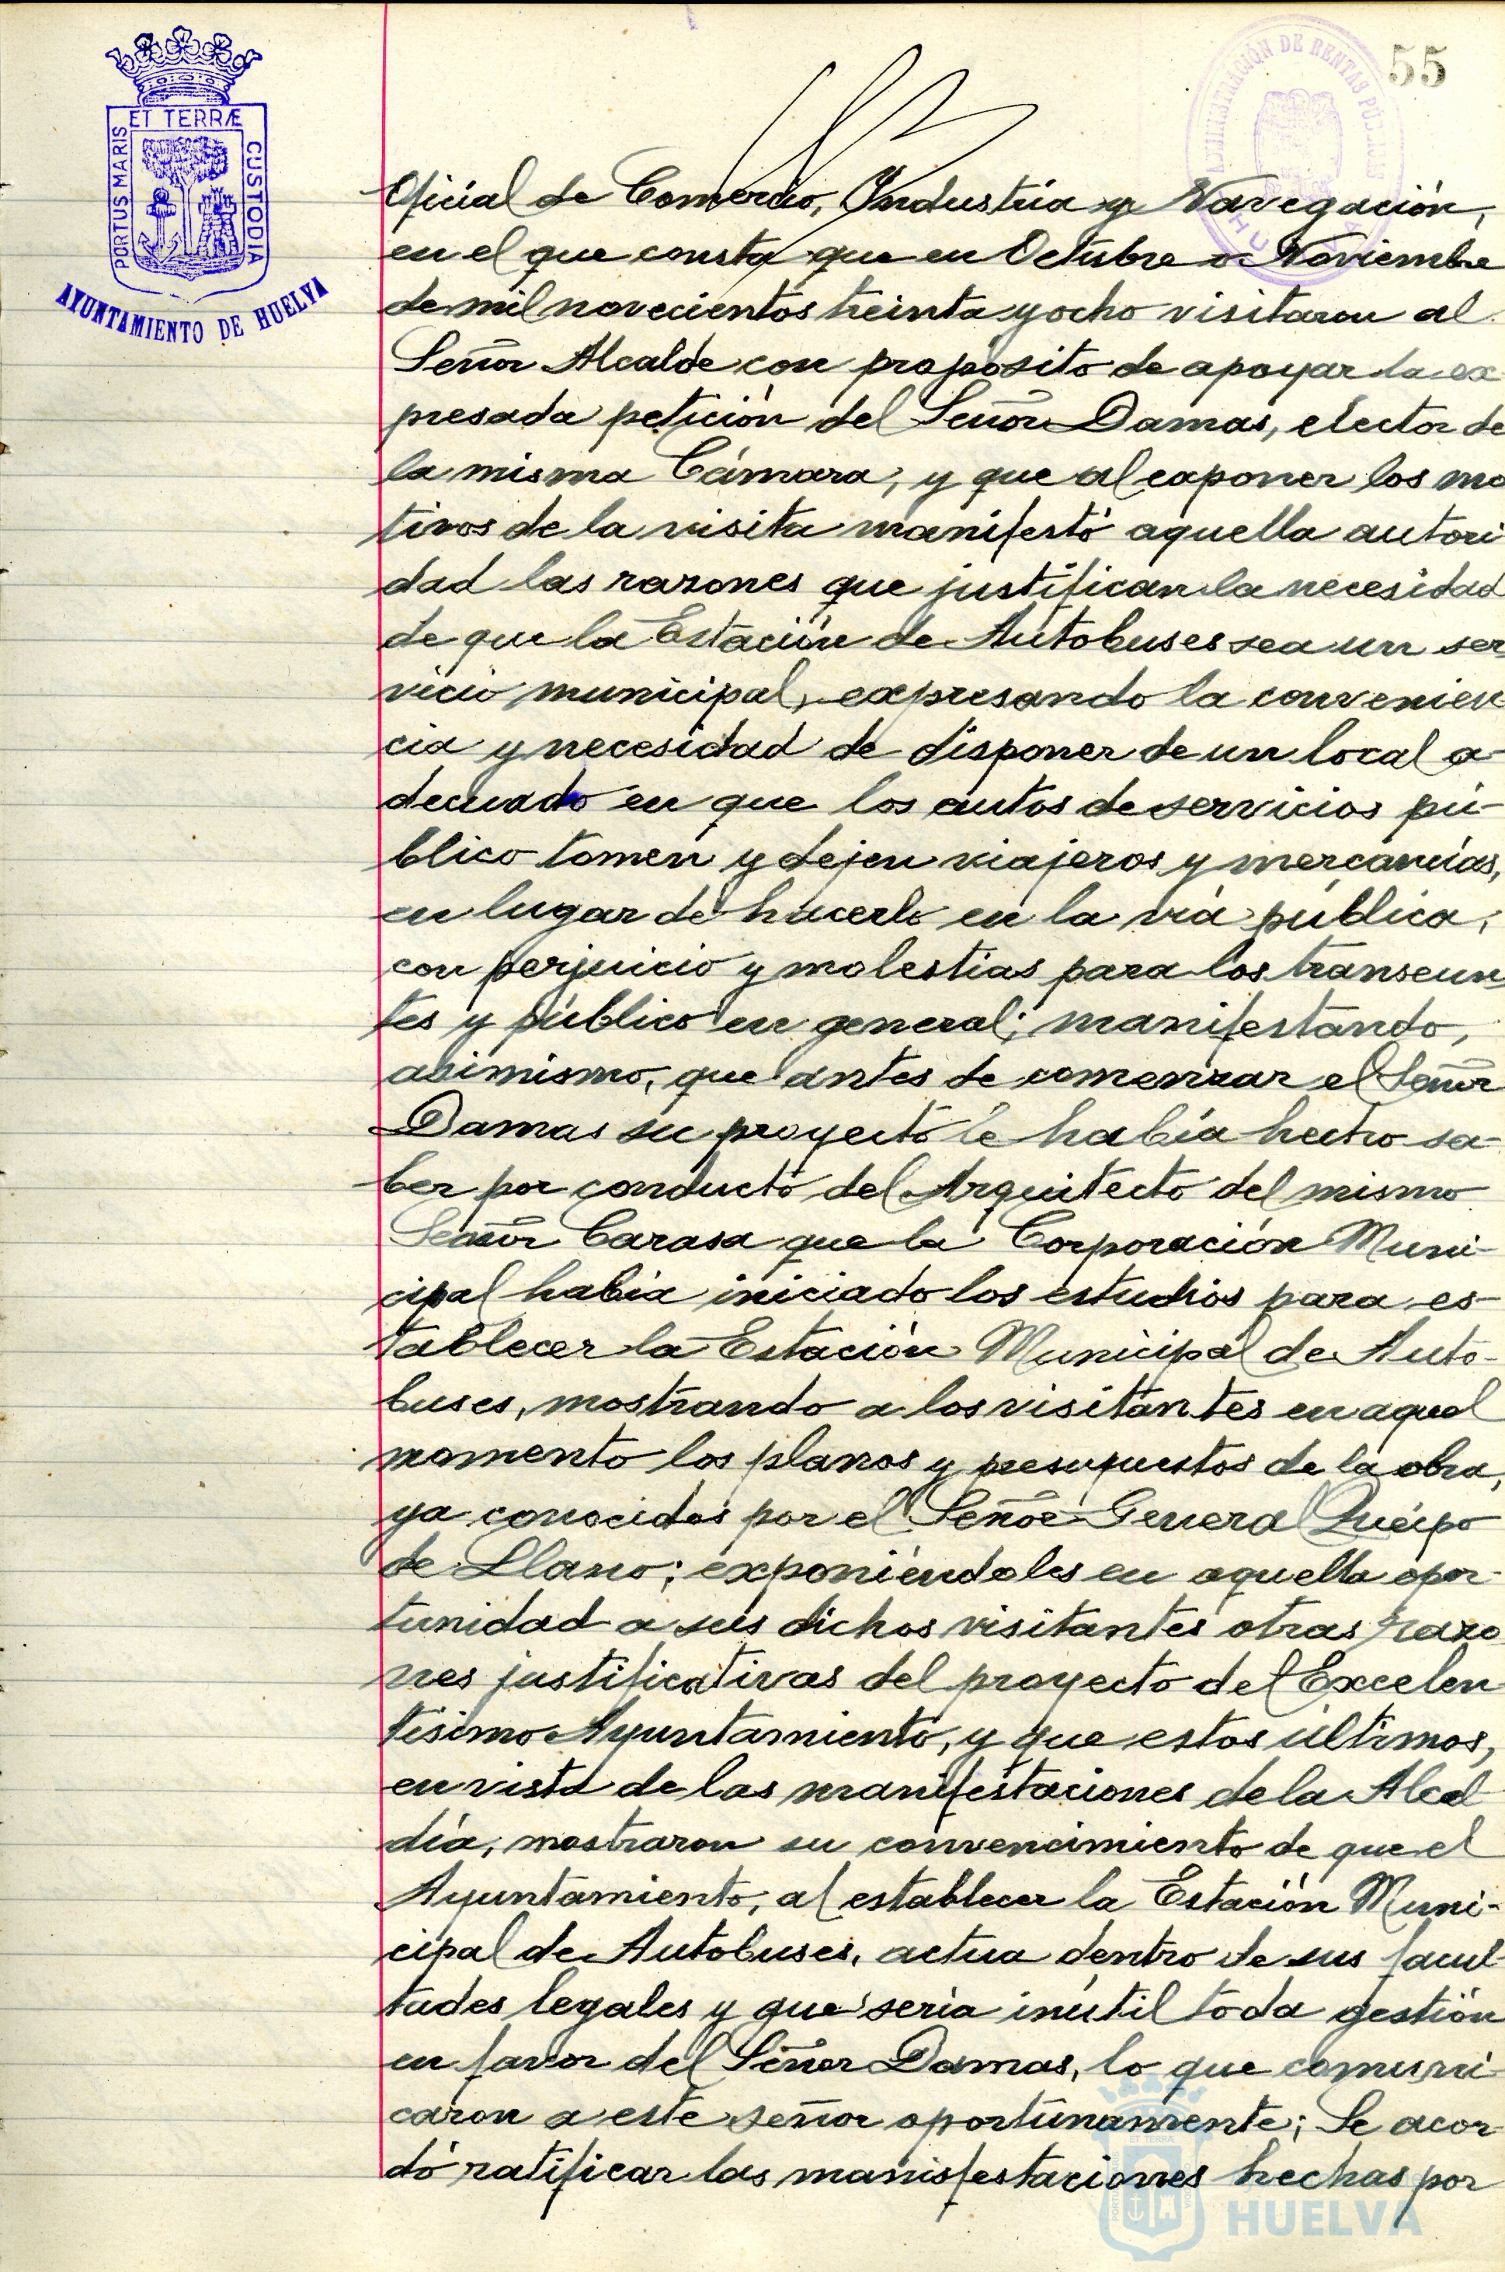 55
ADMINISTRACIÓN DE RENTAS PÚBLICAS
HUELVA
ET TERRÆ
PORTUS MARIS
CUSTODIA
AYUNTAMIENTO DE HUELVA
Oficial de Comercio, Industria y Navegación,
en el que consta que en Octubre o Noviembre
de mil novecientos treinta y ocho visitaron al
Señor Alcalde con propósito de apoyar la ex
presada petición del Señor Damas, elector de
la misma Cámara, y que al exponer los mo
tivos de la visita manifestó aquella autori
dad las razones que justifican la necesidad
de que la Estación de Autobuses sea un ser
vicio municipal, expresando la convenien
cia y necesidad de disponer de un local a-
decuado en que los autos de servicios pú-
blico tomen y dejen viajeros y mercancías,
en lugar de hacerlo en la vía pública,
con perjuicio y molestias para los transeun
tes y público en general; manifestando,
asimismo, que antes de comenzar el Señor
Damas su proyecto le había hecho sa-
ber por conducto del Arquitecto del mismo
Señor Carasa que la Corporación Muni-
cipal había iniciado los estudios para es-
tablecer la Estación Municipal de Auto-
buses, mostrando a los visitantes en aquel
momento los planos y presupuestos de la obra,
ya conocidos por el Señor General Queipo
de Llano; exponiéndoles en aquella opor-
tunidad a sus dichos visitantes otras razo
nes justificativas del proyecto del Excelen
tísimo Ayuntamiento, y que estos últimos,
en vista de las manifestaciones de la Alcal
día, mostraron su convencimiento de que el
Ayuntamiento, al establecer la Estación Muni-
cipal de Autobuses, actua dentro de sus facul
tades legales y que sería inútil toda gestión
en favor del Señor Damas, lo que comuni-
caron a este señor oportunamente; Se acor
dó ratificar las manisfestaciones hechas por
HUELVA